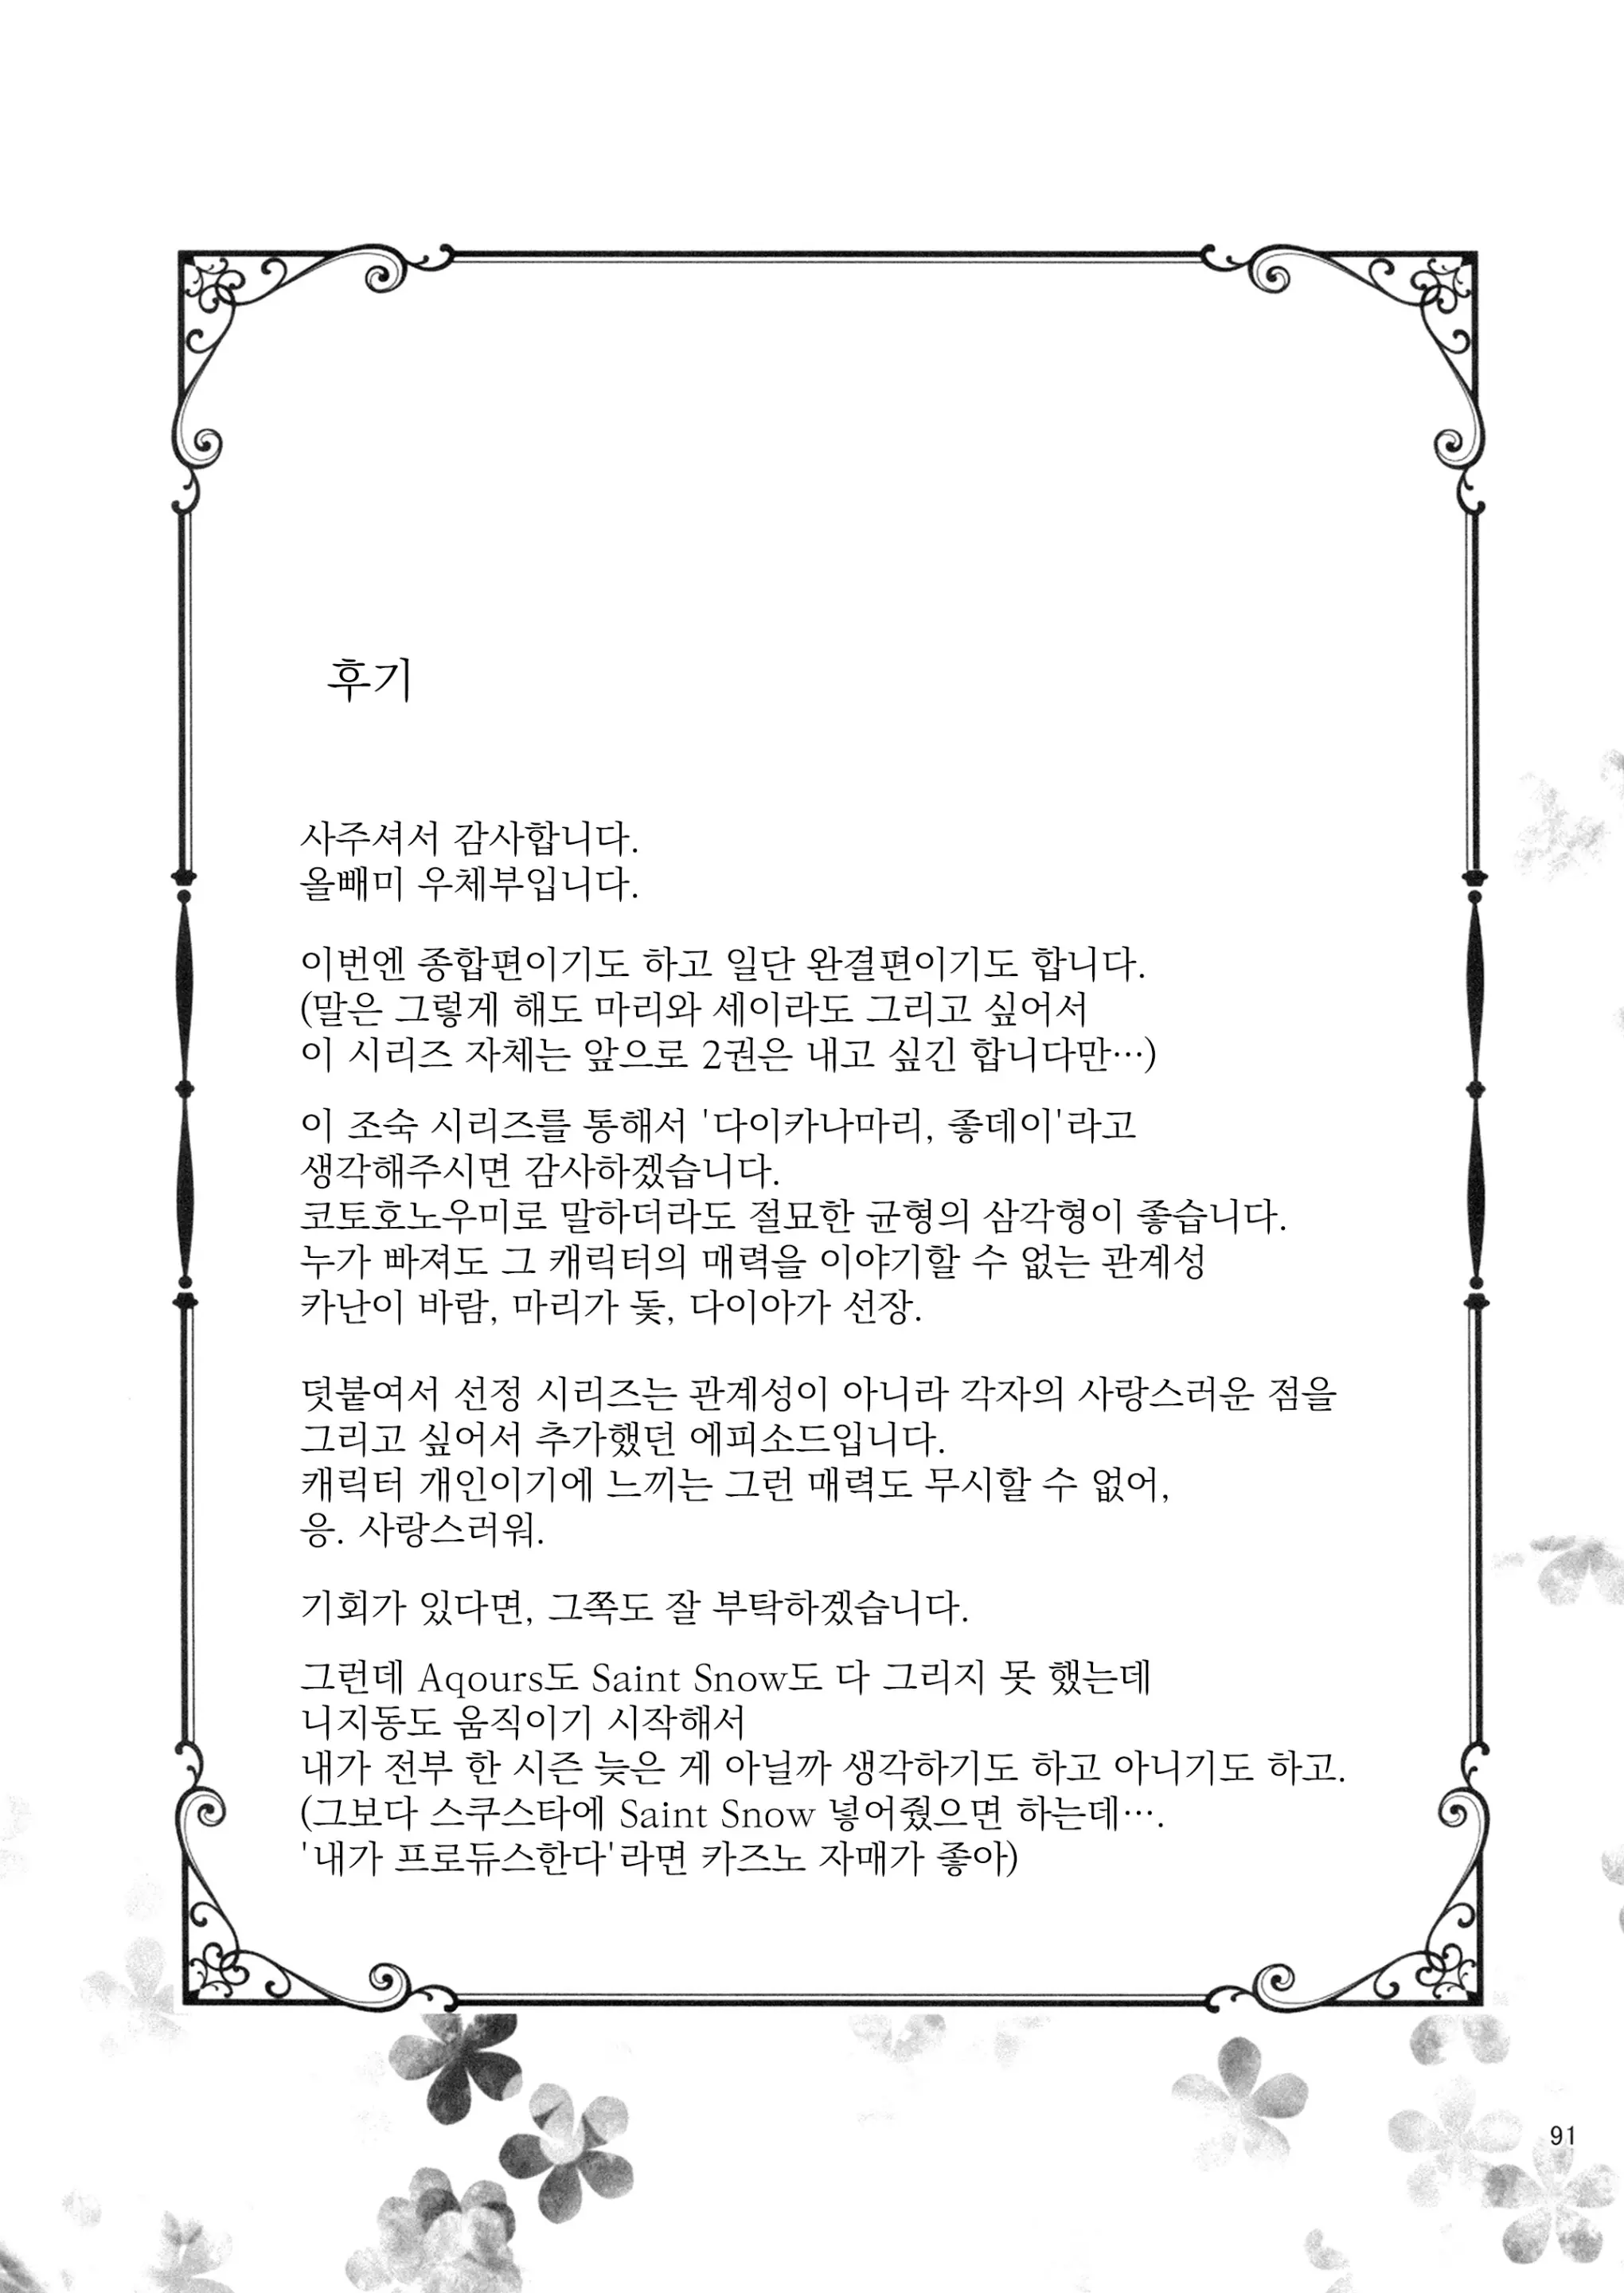 후기
사주셔서 감사합니다.
올빼미 우체부입니다.
이번엔 종합편이기도 하고 일단 완결편이기도 합니다.
(말은 그렇게 해도 마리와 세이라도 그리고 싶어서
이 시리즈 자체는 앞으로 2권은 내고 싶긴 합니다만…)
이 조숙 시리즈를 통해서 '다이카나마리, 좋데이'라고
생각해주시면 감사하겠습니다.
코토호노우미로 말하더라도 절묘한 균형의 삼각형이 좋습니다.
누가 빠져도 그 캐릭터의 매력을 이야기할 수 없는 관계성
카난이 바람, 마리가 돛, 다이아가 선장.
덧붙여서 선정 시리즈는 관계성이 아니라 각자의 사랑스러운 점을
그리고 싶어서 추가했던 에피소드입니다.
캐릭터 개인이기에 느끼는 그런 매력도 무시할 수 없어,
응. 사랑스러워.
기회가 있다면, 그쪽도 잘 부탁하겠습니다.
그런데 Aqours도 Saint Snow도 다 그리지 못 했는데
니지동도 움직이기 시작해서
내가 전부 한 시즌 늦은 게 아닐까 생각하기도 하고 아니기도 하고.
(그보다 스쿠스타에 Saint Snow 넣어줬으면 하는데….
'내가 프로듀스한다'라면 카즈노 자매가 좋아)
91